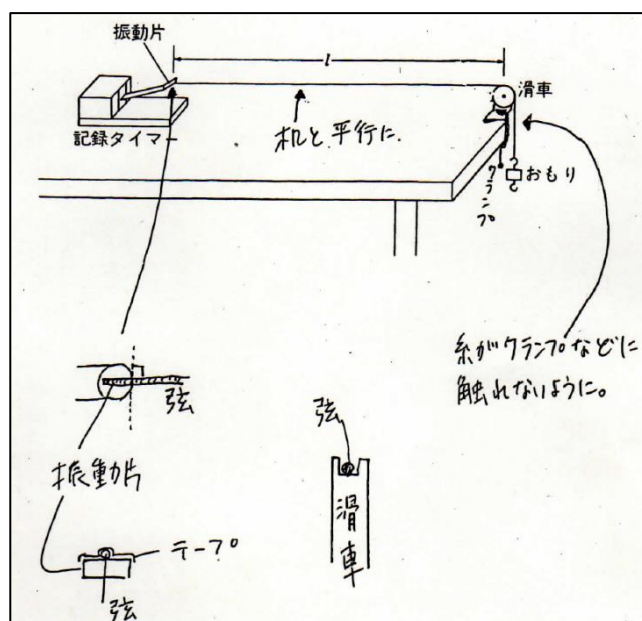 振動片
l
滑車
記録タイマー
机と平行に.
クランプ
おもり
糸がクランプなどに
触れないように。
弦
振動片
テープ
弦
弦
滑車